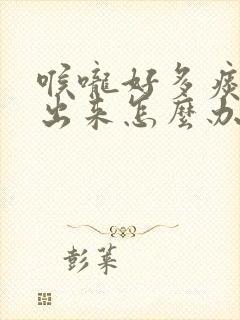 喉嚨好多痰
出来怎麼办
彭莱